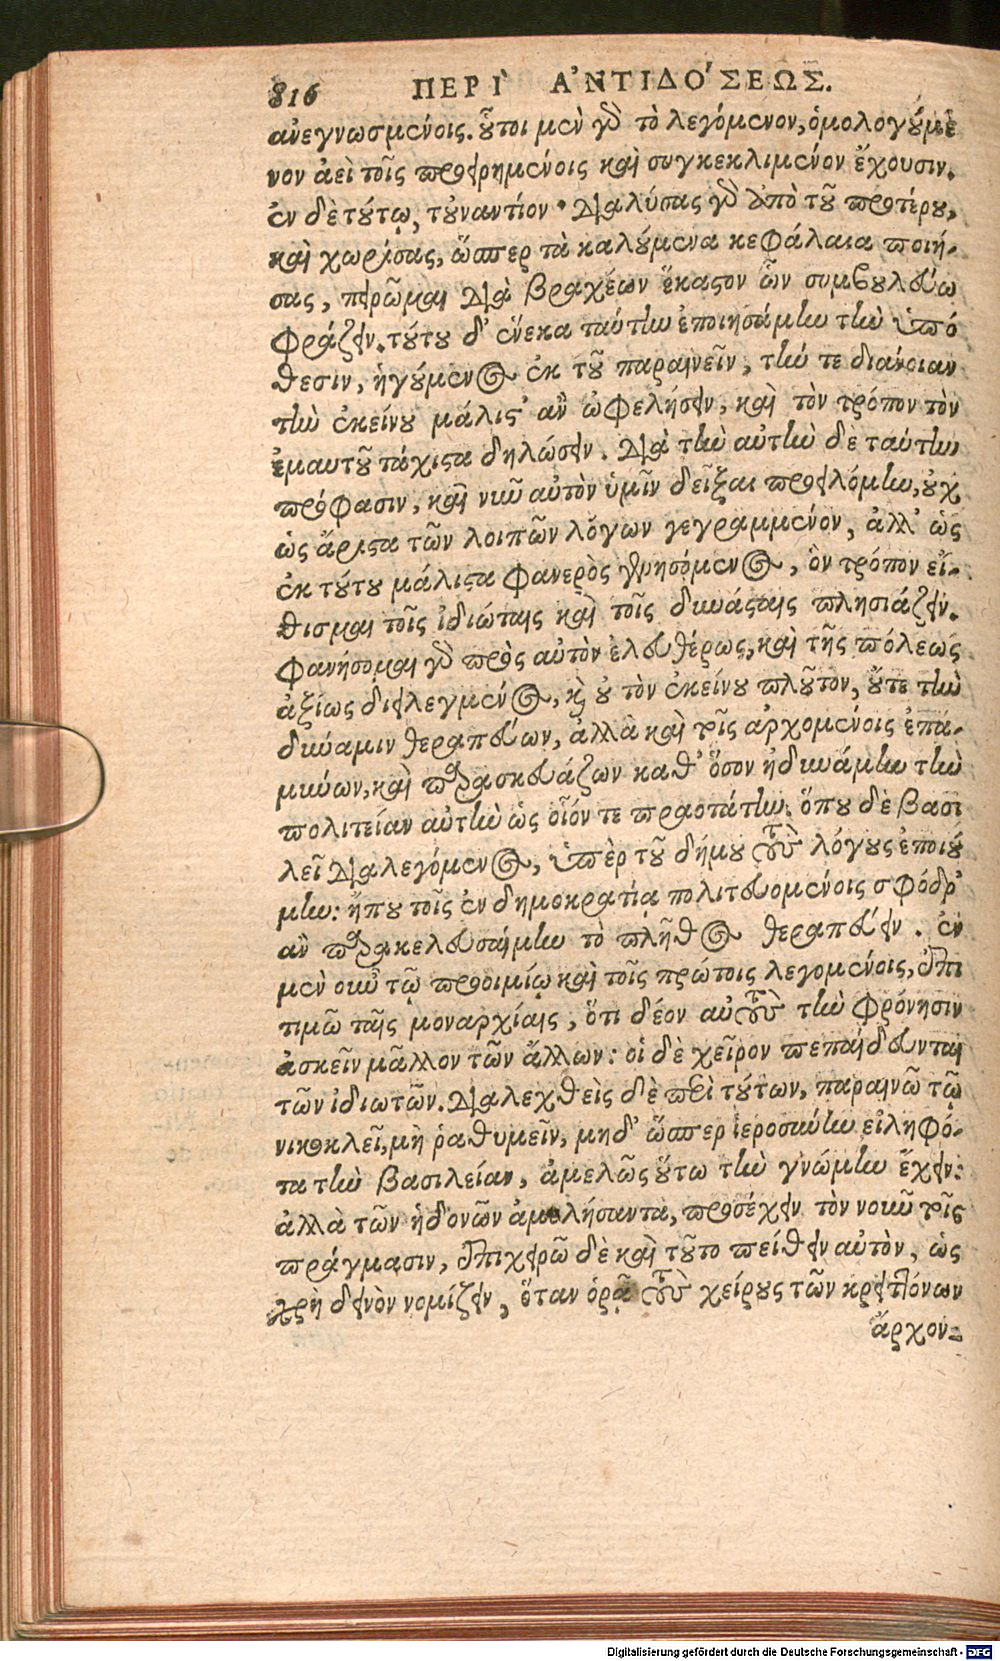 816 ΠΕΡΙ` Α᾿ΝΤΙΔΟ´ΣΕΩΣ.
ἀνεγνωσμένοις. οὗτοι μὲν γὸ τὸ λεγόμενον, ὁμολογούμε
νον ἀεὶ τοῖς προειρημένοις καὶ συγκεκλιμένον ἔχουσιν.
ἐν δὲ τούτῳ, τοὐναντίον · διαλύσας γὸ ἀπὸ τοῦ προτέρου,
καὶ χωρίσας, ὥσπερ τὰ καλούμενα κεφάλαια ποιή-
σας, πειρῶμαι διὰ βραχέων ἕκαστον ὧν συμβουλεύω
φράζειν. τούτου δ' ἕνεκα ταύτην ἐποιησάμην τὴν ὑπό
θεσιν, ἡγούμενος ἐκ τοῦ παραινεῖν, τήν τε διάνοιαν
τὴν ἐκείνου μάλιστ' ἂν ὠφελήσειν, καὶ τὸν τρόπον τὸν
ἐμαυτοῦ τάχιστα δηλώσειν. διὰ τὴν αὐτὴν δὲ ταύτην
πρόφασιν, καὶ νῦν αὐτὸν ὑμῖν δεῖξαι προειλόμην, οὐχ
ὡς ἄριστα τῶν λοιπῶν λόγων γεγραμμένον, ἀλλ' ὡς
ἐκ τούτου μάλιστα φανερὸς γενησόμενος, ὃν τρόπον εἴ-
θισμαι τοῖς ἰδιώταις καὶ τοῖς δυνάσταις πλησιάζειν.
φανήσομαι γὸ πρὸς αὐτὸν ἐλευθέρως, καὶ τῆς πόλεως
ἀξίως διειλεγμένος, καὶ οὐ τὸν ἐκείνου πλοῦτον, οὔτε τὴν
δύναμιν θεραπεύων, ἀλλὰ καὶ τοῖς ἀρχομένοις ἐπα-
μύνων, καὶ παρασκευάζων καθ' ὅσον ἠδυνάμην τὴν
πολιτείαν αὐτὴν ὡς οἷόν τε πραοτάτην. ὅπου δὲ βασι
λεῖ διαλεγόμενος, ὑπὲρ τοῦ δήμου τοὺς λόγους ἐποιού
μην: ἤπου τοῖς ἐν δημοκρατίᾳ πολιτευομένοις σφόδρ'
ἂν παρακελευσαίμην τὸ πλῆθος θεραπεύειν. ἐν
μὲν οὖν τῷ προοιμίῳ καὶ τοῖς πρώτοις λεγομένοις, ἐπι
τιμῶ ταῖς μοναρχίαις, ὅτι δέον αὐτοὺς τὴν φρόνησιν
ἀσκεῖν μᾶλλον τῶν ἄλλων: οἱ δὲ χεῖρον πεπαίδευνται
τῶν ἰδιωτῶν. διαλεχθεὶς δὲ περὶ τούτων, παραινῶ τῷ
νικοκλεῖ, μὴ ῥαθυμεῖν, μηδ' ὥσπερ ἱεροσύνην εἰληφό-
τα τὴν βασιλείαν, ἀμελῶς οὕτω τὴν γνώμην ἔχειν:
ἀλλὰ τῶν ἡδονῶν ἀμελήσαντα, προσέχειν τὸν νοῦν τοῖς
πράγμασιν, ἐπιχειρῶ δὲ καὶ τοῦτο πείθειν αὐτὸν, ὡς
χρὴ δεινὸν νομίζειν, ὅταν ὁρᾷ τοὺς χείρους τῶν κρειττόνων
ἄρχον-
Digitalisierung gefördert durch die Deutsche Forschungsgemeinschaft - DFG